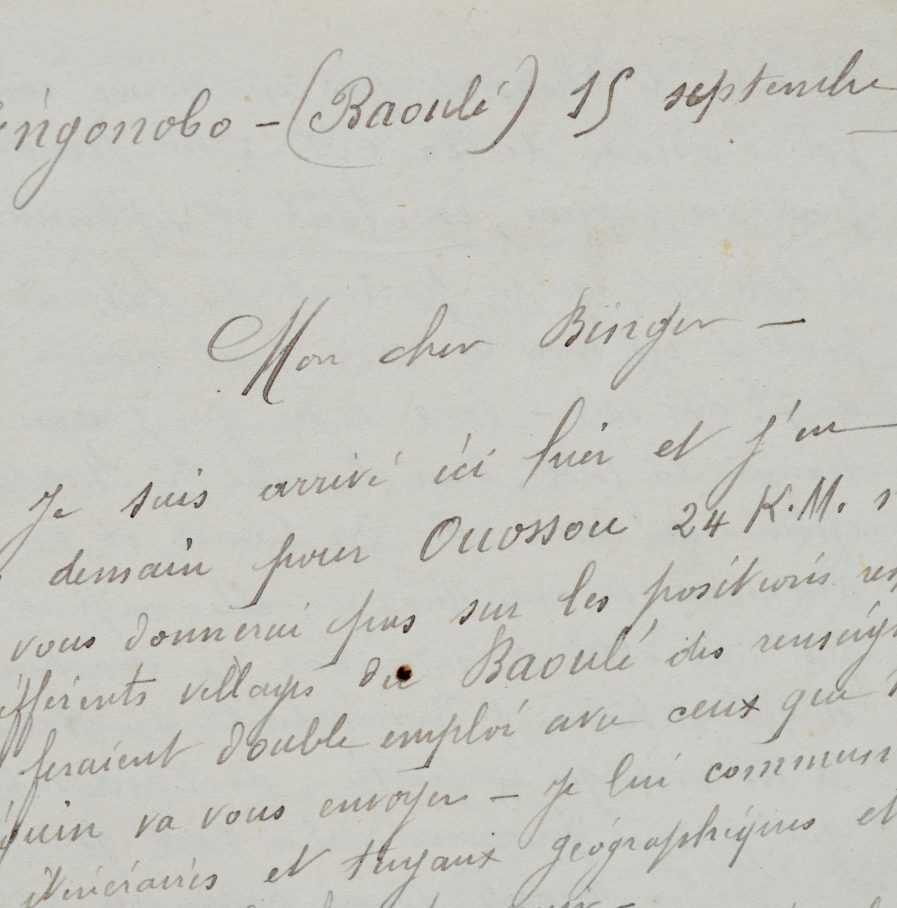 ngonobo - (Baoulé) 15 septembre
Mon cher Binger -
Je suis arrivé ici hier et j'en
demain pour Ouossou 24 K.M.
vous donnerai pas sur les positions
différents villages du Baoulé des
feraient double emploi avec ceux que
va vous envoyer - Je lui
itinéraires et tuyaux géographiques et